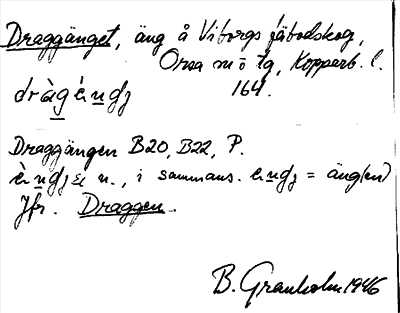 Draggänget, äng å Viborgs fäbodskog,
Orsa m o tg, Kopparb. l.
164.
Draggängen B20, B22, P.
n., i sammans. = äng(en)
Jfr. Draggen.
B. Granholm 1946